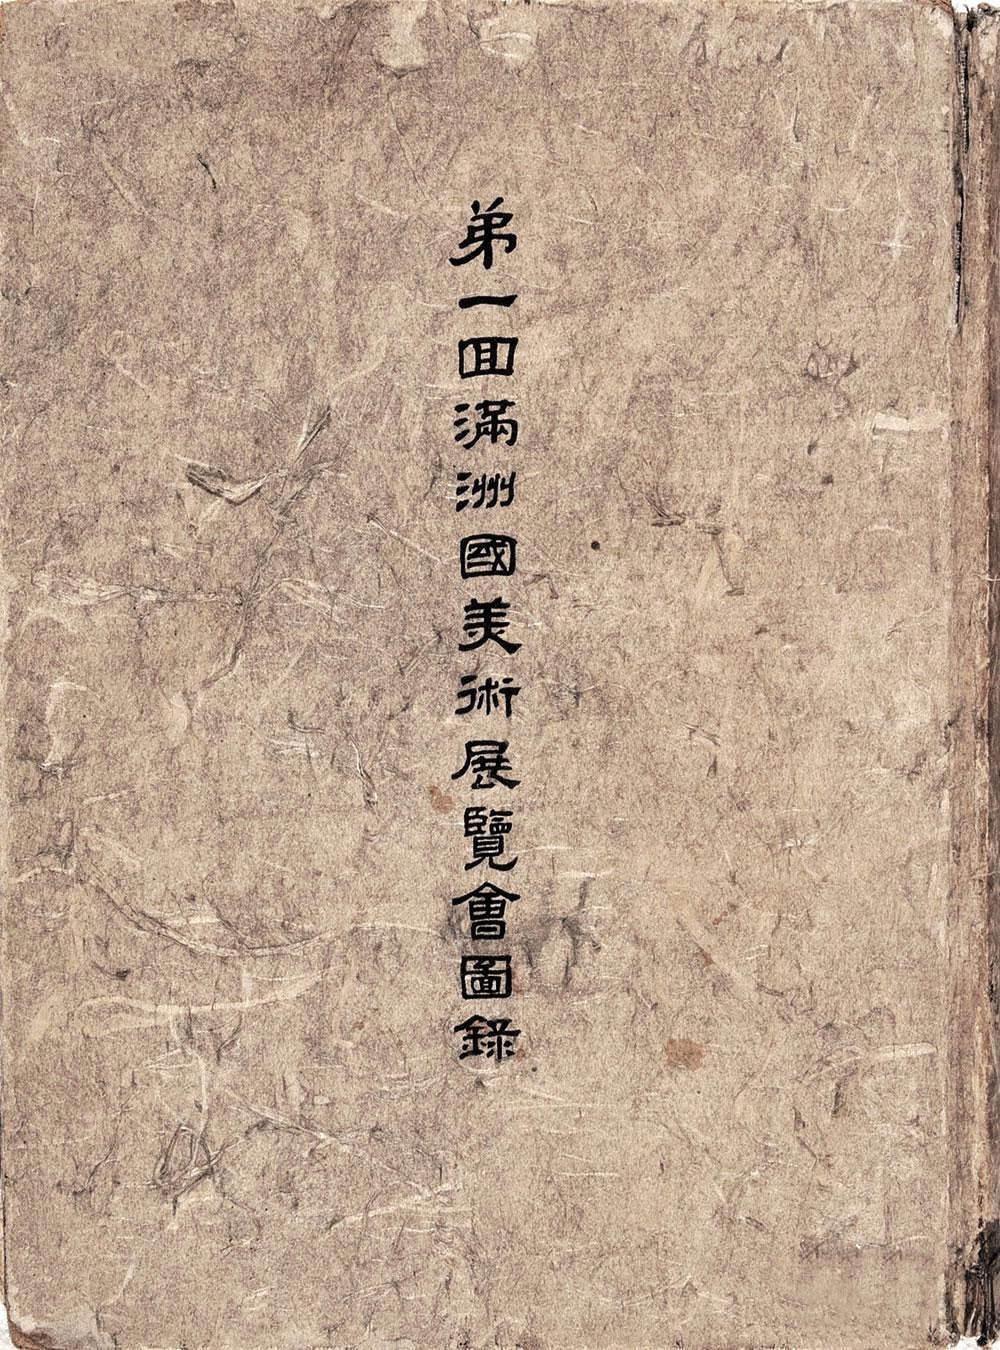 弟一回滿洲國美術展覽會圖錄